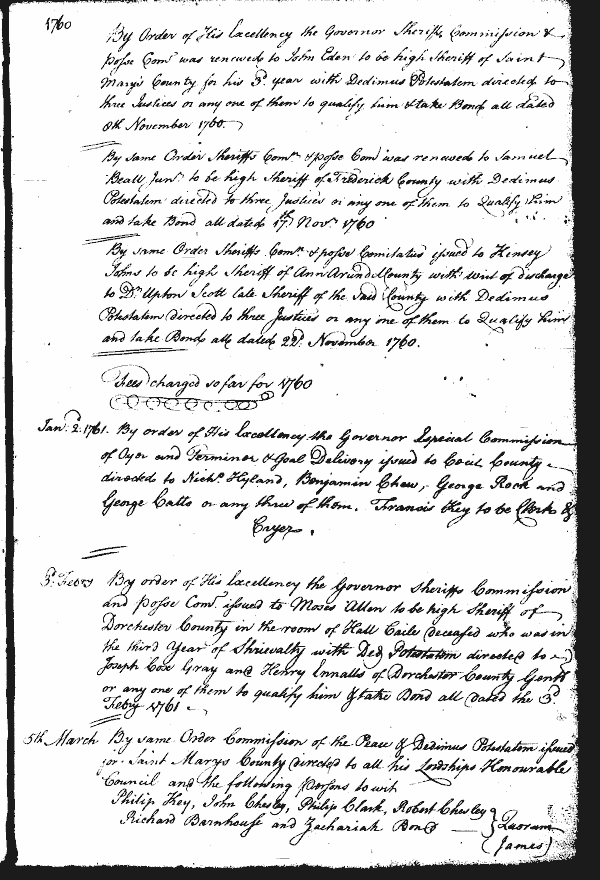 1760
By Order of His Excellency the Governor Sheriffs Commission &
posse Com. was renewed to John Eden to be high Sheriff of Saint
Marys County for his 3d. year with Dedimus Potestatem directed to
three Justices or any one of them to qualify him & take Bond all dated
8th November 1760.
By same Order Sheriffs Comn. & posse Com was renewed to Samuel
Beall Junr. to be high Sheriff of Frederick County with Dedimus
Potestatem directed to three Justices or any one of them to Qualify him
and take Bond all dated 17th Novr. 1760
By same Order Sheriffs Comn. & posse Comitatus issued to Kinsey
Johns to be high Sheriff of Ann Arundel County with Writ of discharge
to Dr. Upton Scott late Sheriff of the said County with Dedimus
Potestatem directed to three Justices or any one of them to Qualify him
and take Bonds all dated 22d. November 1760.
Fees charged so far for 1760
Jany. 2. 1761. By order of His Excellency the Governor Especial Commission
of Oyer and Terminer & Goal Delivery issued to Cecil County
directed to Nichs. Hyland, Benjamin Chew, George Rock and
George Catto or any three of them. Francis Key to be Clerk &
Cryer.
3d. Febry By order of His Excellency the Governor Sheriffs Commission
and Posse Com. issued to Moses Allen to be high Sheriff of
Dorchester County in the room of Hall Caile deceased who was in
the third Year of Shrievalty with Ded Potestatem directed to
Joseph Cox Gray and Henry Ennalls of Dorchester County Gentn
or any one of them to qualify him & take Bond all dated the 3d
Febry 1761
5th March By same Order Commission of the Peace & Dedimus Potestatem issued
for Saint Marys County directed to all his Lordships Honourable
Council and the following Persons to wit
Philip Key, John Chesley, Philip Clark, Robert Chesley
Richard Barnhouse and Zachariah Bond } Quorum
(James)